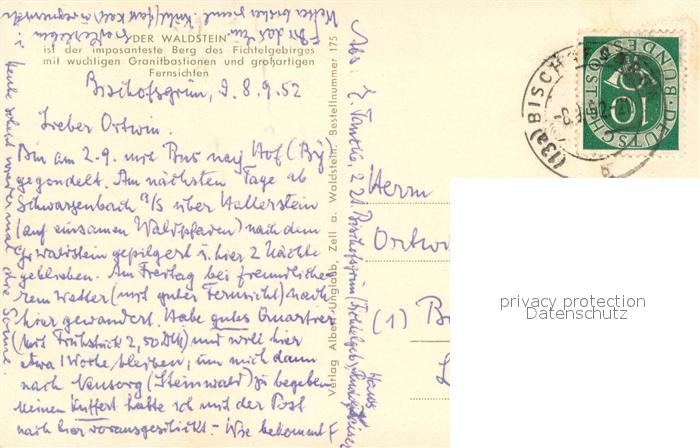 DER WALDSTEIN
ist der imposanteste Berg des Fichtelgebirges
mit wuchtigen Granitbastionen und großartigen
Fernsichten
Bischofsgrün, d. 8.9.52
Lieber Ortwin.
Bin am 2-9. mit Bus nach Hof (By)
gegondelt. Am nächsten Tage ab
Schwarzenbach a/S über Hallerstein
(auf einsamen Waldpfaden) nach dem
Gr. Waldstein gepilgert u. hier 2 Nächte
geblieben. Am Freitag bei freundliche-
rem Wetter (mit guter Fernsicht) nach
hier gewandert. Habe gutes Quartier
(mit Frühstück 2,50 DM) und will hier
etwa 1 Woche bleiben, um mich dann
nach Neusorg (Steinwald) zu begeben
Meinen Koffert hatte ich mit der Post
nach hier vorausgeschickt. - Wie bekommt
heute scheint wieder mal die Sonne.
Wetter bisher meist kühl
Verlag Albert Unglaub, Zell a. Waldstein, Bestellnummer 175
Abs: z. Zt. Bischofsgrün (Fichtelgeb)
Haus
Herrn
Ortwi
(1) B
(13a) BISCH
-8.9.52-
DEUTSCHE BUNDESPOST
10
privacy protection
Datenschutz